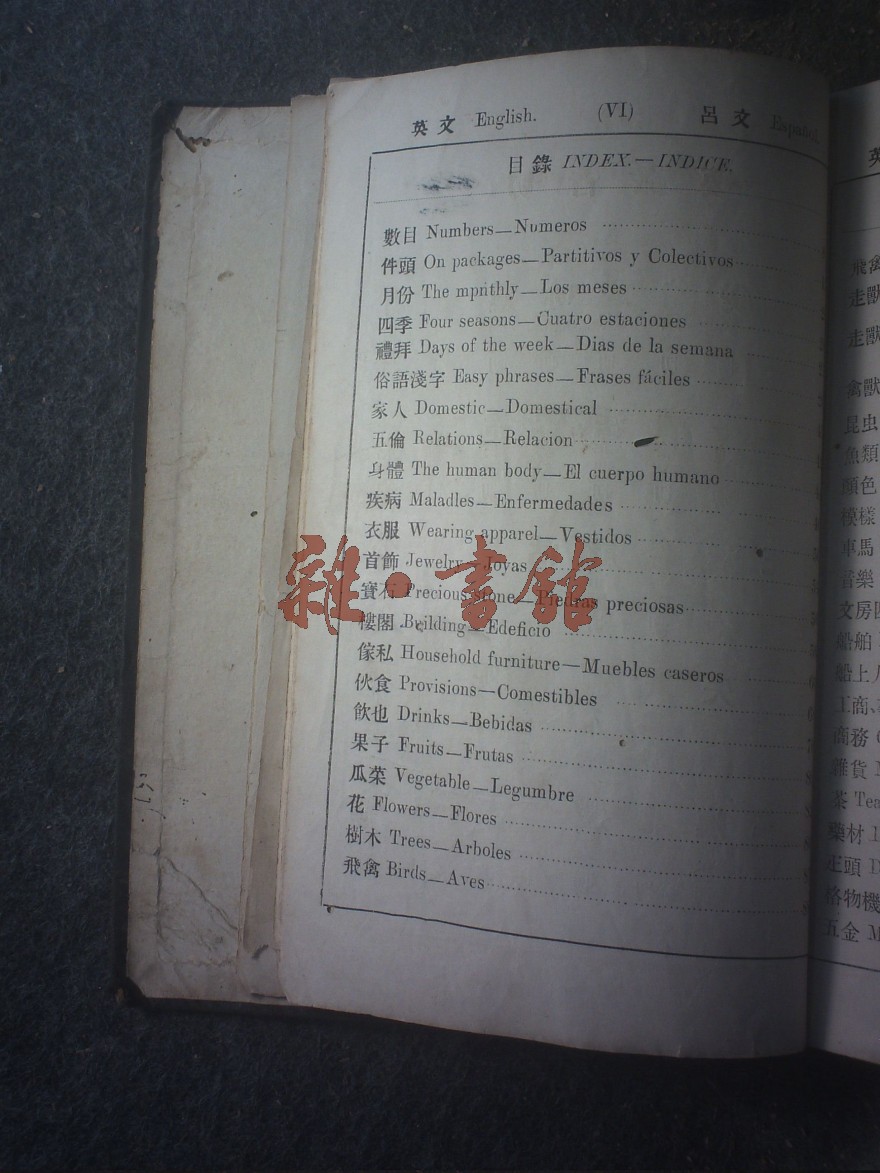 英文 English. (VI) 呂文 Español.
目錄 INDEX.—INDICE.
數目 Numbers—Numeros
件頭 On packages—Partitivos y Colectivos
月份 The mpnthly—Los meses
四季 Four seasons—Cuatro estaciones
禮拜 Days of the week—Dias de la semana
俗語淺字 Easy phrases—Frases fáciles
家人 Domestic—Domestical
五倫 Relations—Relacion
身體 The human body—El cuerpo humano
疾病 Maladles—Enfermedades
衣服 Wearing apparel—Vestidos
首飾 Jewelry—Joyas
寶石 Precious stone—Piedras preciosas
樓閣 Building—Edeficio
傢私 Household furniture—Muebles caseros
伙食 Provisions—Comestibles
飲也 Drinks—Bebidas
果子 Fruits—Frutas
瓜菜 Vegetable—Legumbre
花 Flowers—Flores
樹木 Trees—Arboles
飛禽 Birds—Aves
雜·書館
英
飛禽
走獸
走獸
禽獸
昆虫
魚類
顏色
模樣
車馬
音樂
文房四
船舶
船上人
工商
商務
雜貨
茶 Tea
藥材
疋頭
格物機
五金